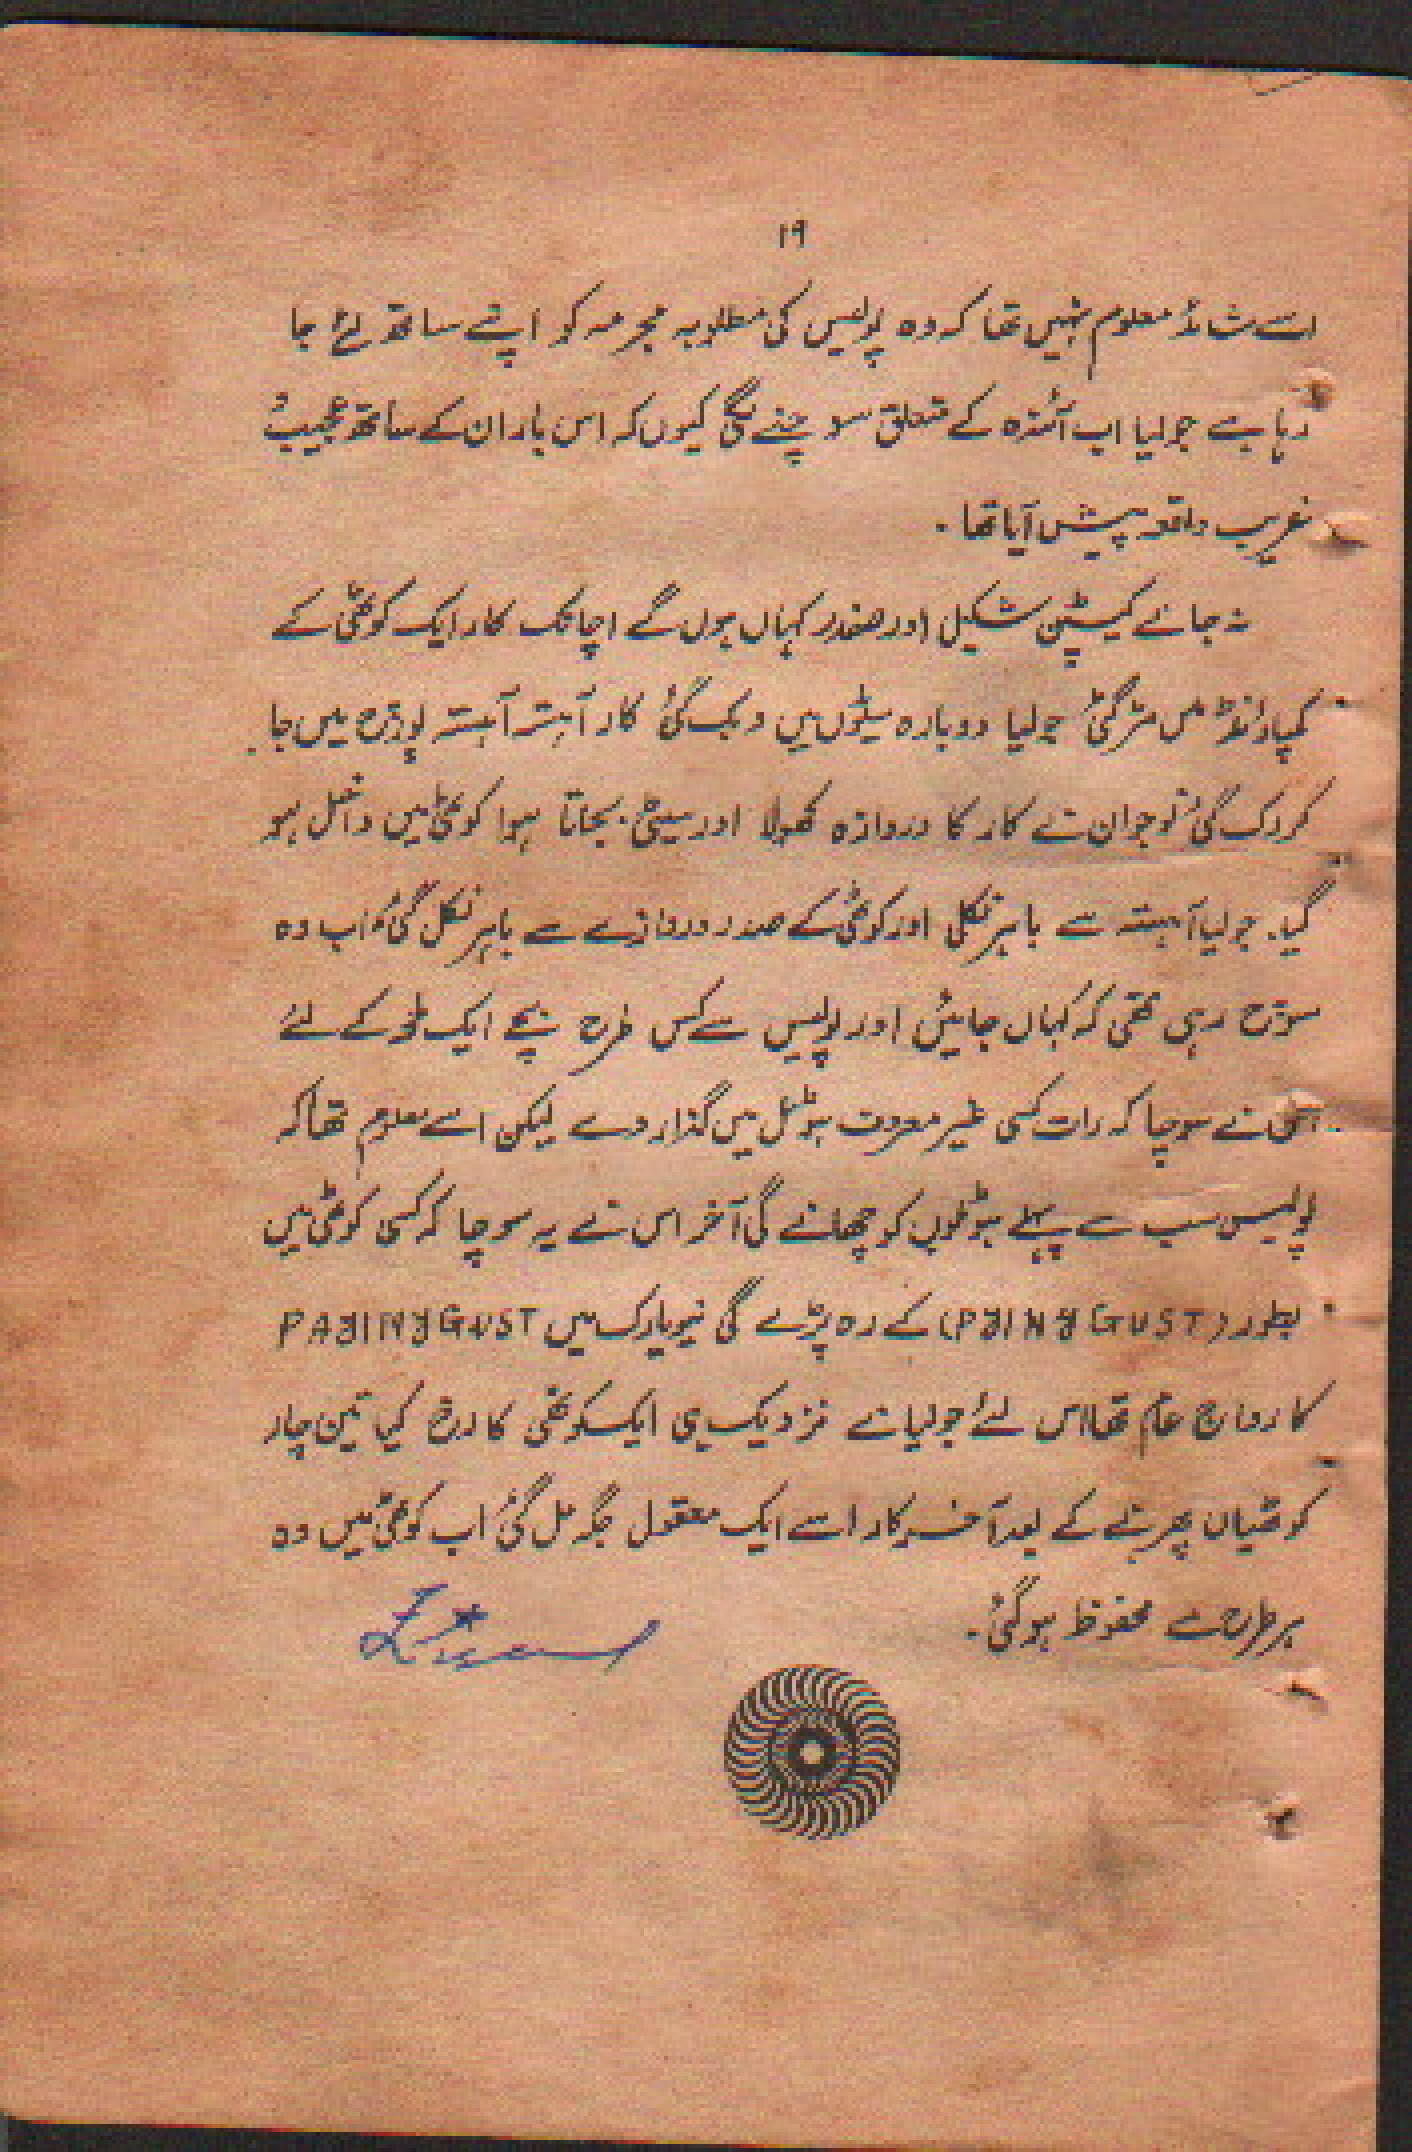 ۱۹
اسے شائد معلوم نہیں تھا کہ وہ پولیس کی مطلوبہ مجرمہ کو اپنے ساتھ لئے جا
رہا ہے جولیا اب آئندہ کے متعلق سوچنے لگی کیوں کہ اس بار ان کے ساتھ عجیب و
غریب واقعہ پیش آیا تھا ۔
نہ جانے کیپٹن شکیل اور صفدر کہاں ہوں گے اچانک کار ایک کوٹھی کے
کمپاؤنڈ میں مڑ گئی جولیا دوبارہ سیٹوں میں دبک گئی کار آہستہ آہستہ پورچ میں جا
کر رک گئی نوجوان نے کار کا دروازہ کھولا اور سیٹی بجاتا ہوا کوٹھی میں داخل ہو
گیا۔ جولیا آہستہ سے باہر نکلی اور کوٹھی کے صدر دروازے سے باہر نکل گئی اب وہ
سوچ رہی تھی کہ کہاں جائے اور پولیس سے کس طرح بچے ایک لمحہ کے لئے
اس نے سوچا کہ رات کسی غیر معروف ہوٹل میں گذار دے لیکن اسے معلوم تھا کہ
پولیس سب سے پہلے ہوٹلوں کو چھانے گی آخر اس نے یہ سوچا کہ کسی کوٹھی میں
بطور (PYINY GUST) کے رہ پڑے گی نیویارک میں PAYINYGUST
کا رواج عام تھا اس لئے جولیا نے نزدیک ہی ایک کوٹھی کا رخ کیا تین چار
کوٹھیاں پھرنے کے بعد آخر کار اسے ایک معقول جگہ مل گئی اب کوٹھی میں وہ
ہر طرح سے محفوظ ہو گئی ۔